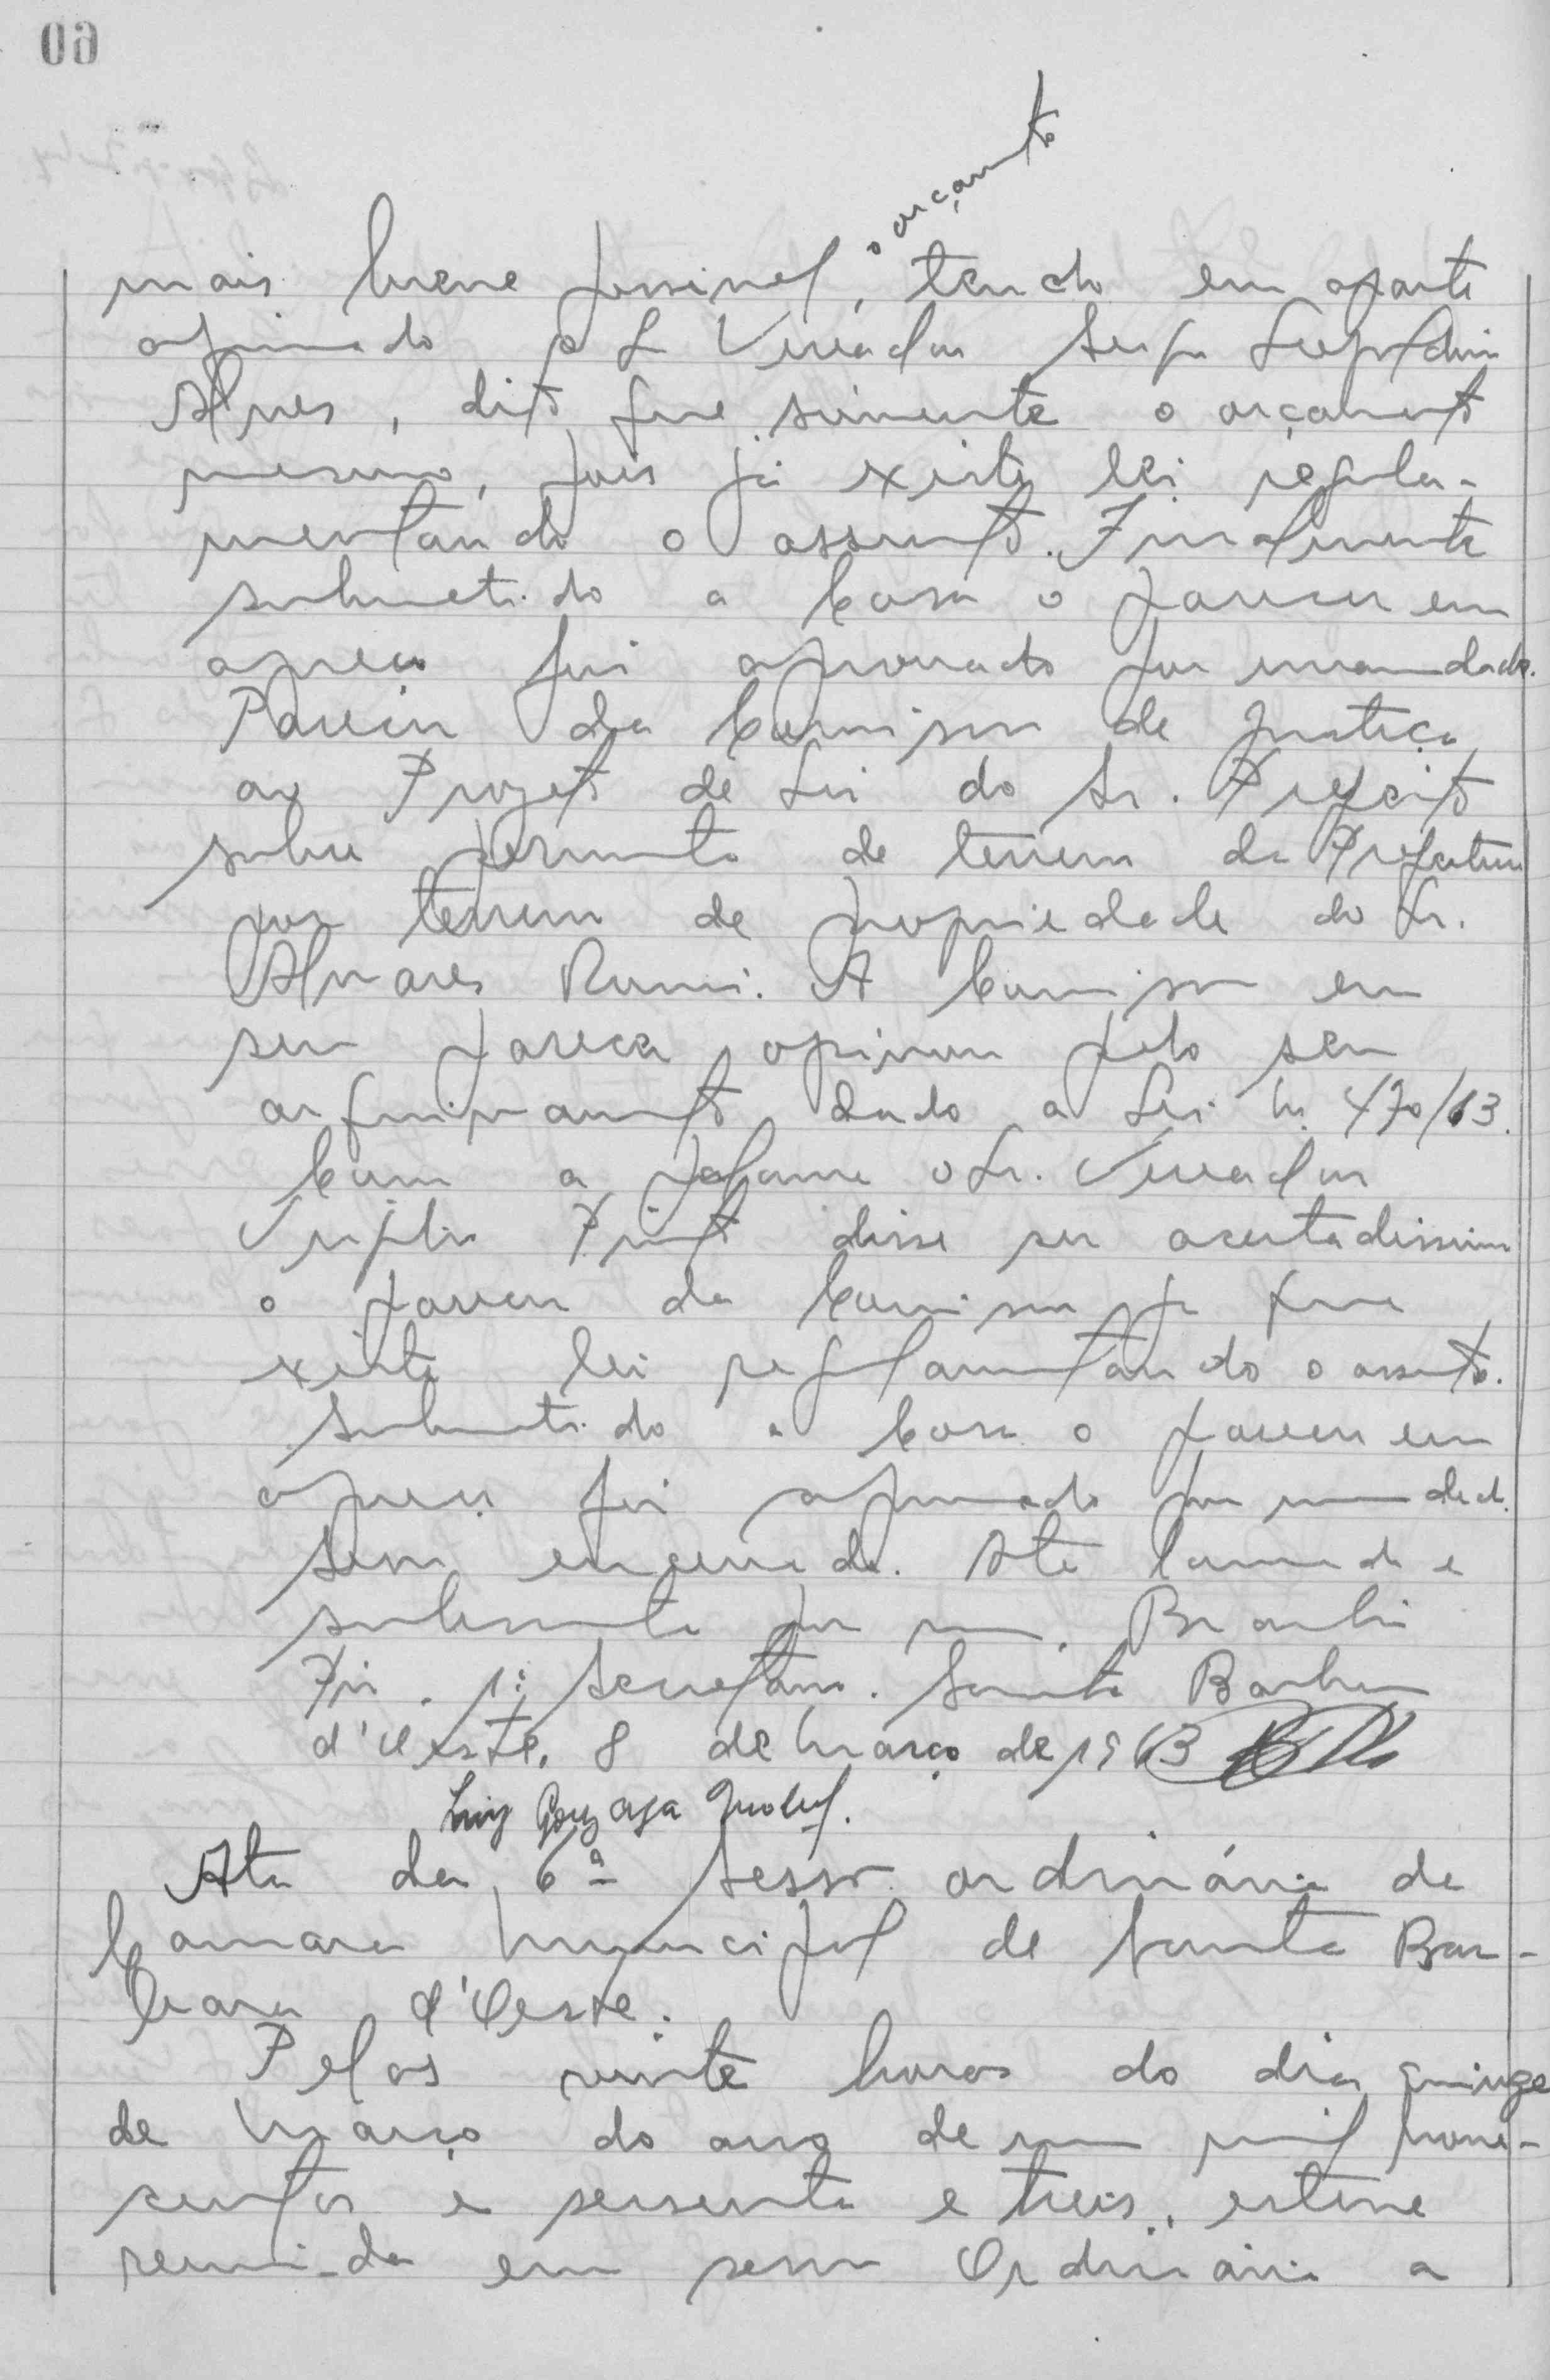 60
o orçamento
mais breve possivel, tendo em aparte
opinado o Sr Vereador
Alves, dito que somente o orçamento
mesmo, pois já existe lei regula-
mentando o assunto. Finalmente
submetido a Casa o parecer em
apreço foi aprovado por unanimidade.
Parecer da Comissão de Justiça
ao Projeto de Lei do Sr. Prefeito
sobre permuta de terreno da Prefeitura
por terreno de propriedade do Sr.
Alvares Romi. A Comissão em
seu parecer opinou pelo seu
arquivamento dado a Lei n. 470/63.
Com a palavra o Sr. Vereador
disse ser acertadissimo
o parecer da Comissão já que
existe lei regulamentando o assunto.
Submetido a Casa o parecer em
apreço foi aprovado por unanimidade.
Sessão encerrada. Ata lavrada e
subscrita por mim,
1º Secretario. Santa Barbara
d'Oeste, 8 de Março de 1963
Luiz Gonzaga
Ata da 6ª Sessão ordinária da
Camara Municipal de Santa Bar-
bara d'Oeste.
Pelas vinte horas do dia quinze
de Março do ano de um mil nove-
centos e sessenta e treis, esteve
reunida em sessão Ordinária a